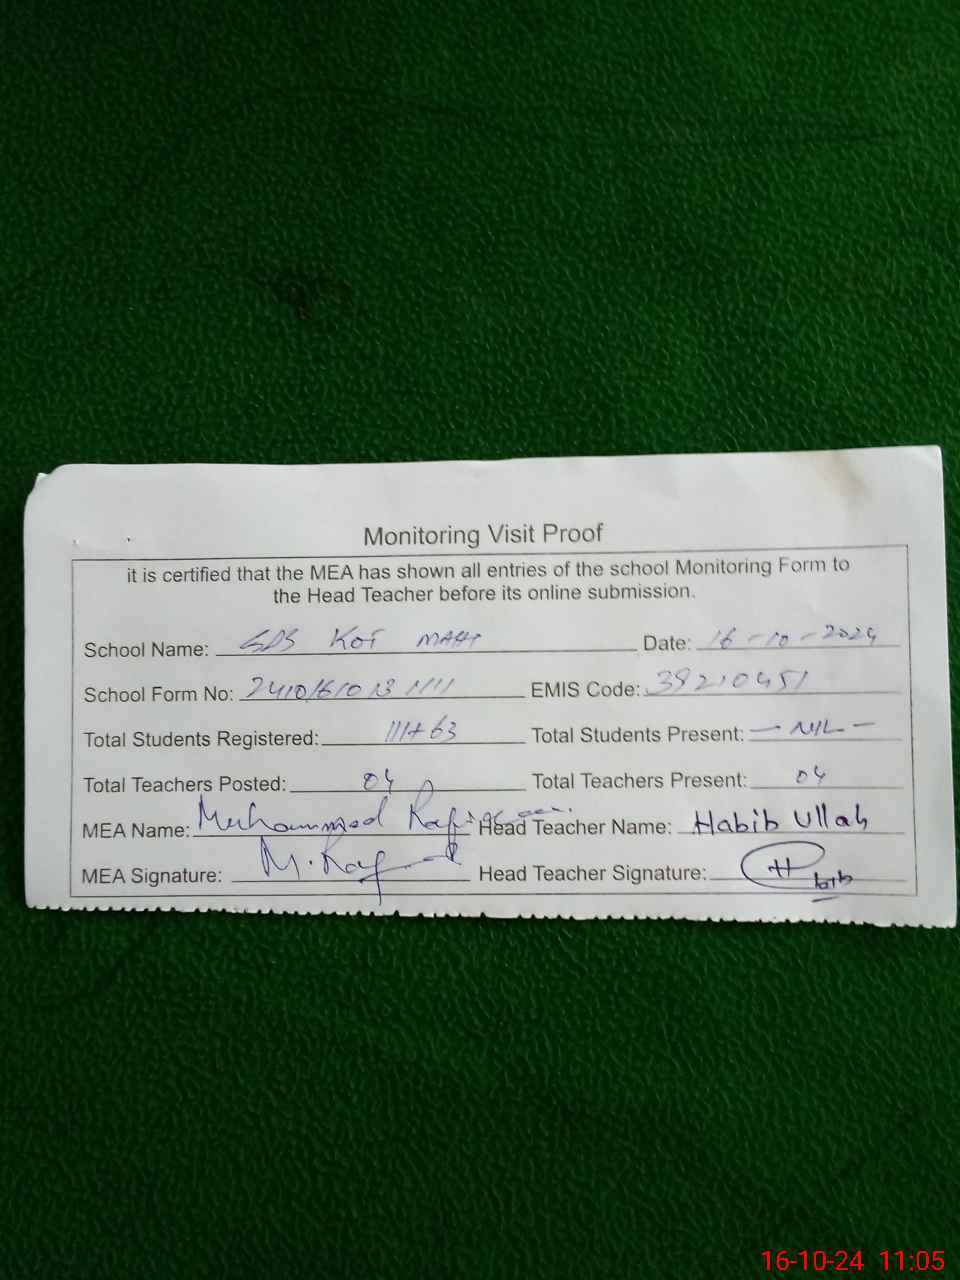 Monitoring Visit Proof
it is certified that the MEA has shown all entries of the school Monitoring Form to
the Head Teacher before its online submission.
School Name: KOT Date: 16-10-2024
School Form No: EMIS Code: 39210451
Total Students Registered: 111+63 Total Students Present: - NIL -
Total Teachers Posted: 04 Total Teachers Present: 04
MEA Name: Muhammad Head Teacher Name: Habib Ullah
MEA Signature: Head Teacher Signature:
16-10-24 11:05